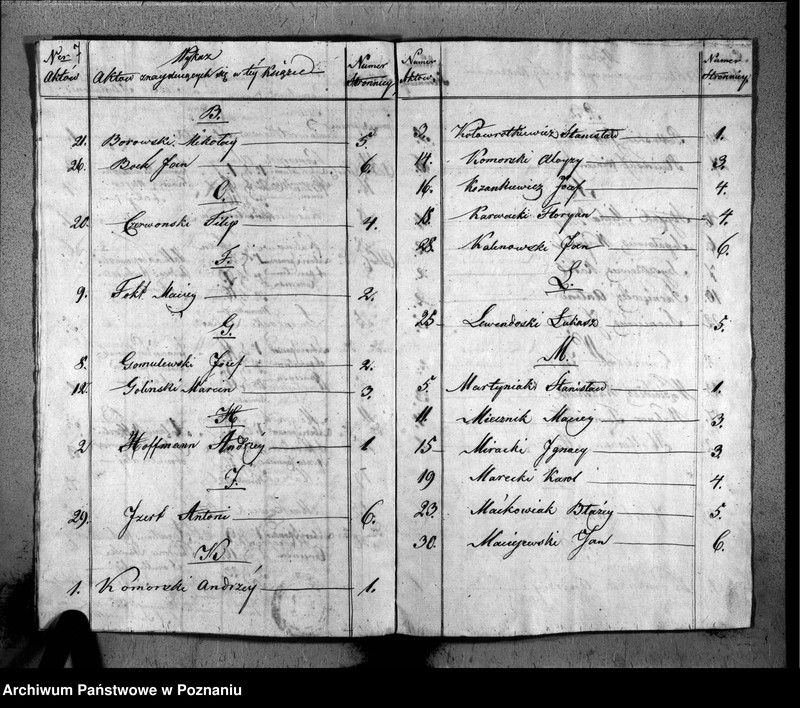 Ner Aktów
Wykaz
Aktów znayduiących się w téy Książce
Numer Stronnicy
B.
21. Borowski Mikołay 5.
26. Bock Jan 6.
C.
20. Czerwonski Filip 4.
F.
9. Fokt Maciey 2.
G.
8. Gomulewski Józef 2.
12. Golinski Marcin 3.
H
2 Hoffmann Andrzey 1
J.
29. Jzert Antoni 6.
K
1. Komorski Andrzéy 1.
Numer Aktów.
Numer Stronnicy.
3. Kołowrotkiewicz Stanisław 1.
14. Komorski Aloyzy 3.
16. Kozankiewicz Józef 4.
18. Karwacki Floryan 4.
28. Kalinowski Jan 6.
L.
25 Lewendoski Łukasz 5.
M.
5. Martyniak Stanisław 1.
11. Miecznik Maciey 3.
15 Miracki Jgnacy 3.
19 Marecki Karol 4.
23. Maćkowiak Błażey 5.
30. Maciejewski Jan 6.
Archiwum Państwowe w Poznaniu